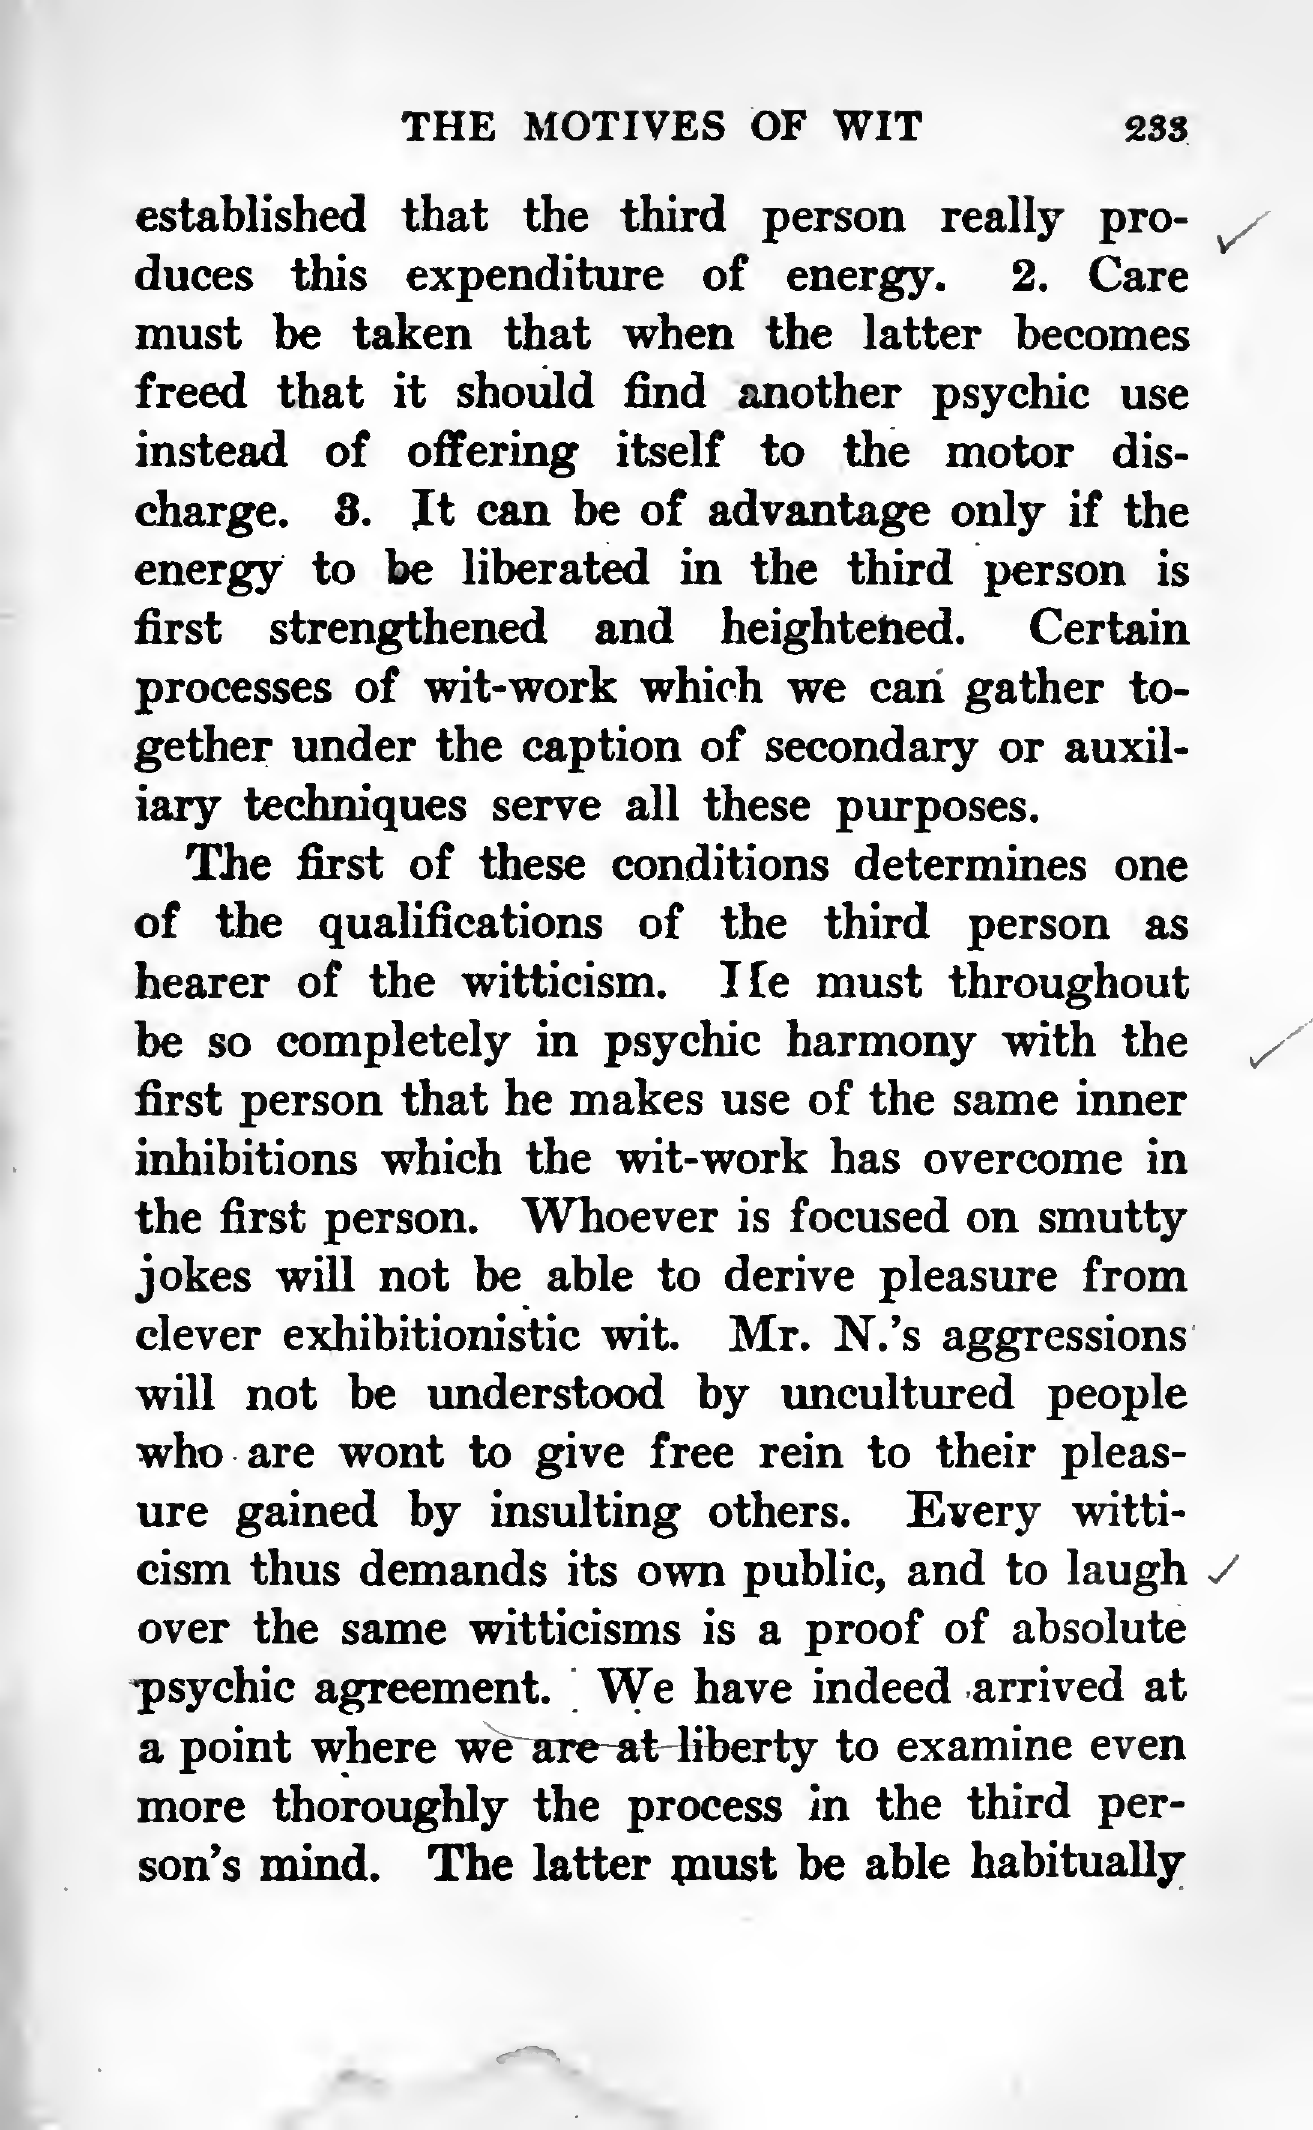 THE MOTIVES OF WIT 233
established that the third person really pro-
duces this expenditure of energy. 2. Care
must be taken that when the latter becomes
freed that it should find another psychic use
instead of offering itself to the motor dis-
charge. 3. It can be of advantage only if the
energy to be liberated in the third person is
first strengthened and heightened. Certain
processes of wit-work which we can gather to-
gether under the caption of secondary or auxil-
iary techniques serve all these purposes.
The first of these conditions determines one
of the qualifications of the third person as
hearer of the witticism. He must throughout
be so completely in psychic harmony with the
first person that he makes use of the same inner
inhibitions which the wit-work has overcome in
the first person. Whoever is focused on smutty
jokes will not be able to derive pleasure from
clever exhibitionistic wit. Mr. N.'s aggressions
will not be understood by uncultured people
who are wont to give free rein to their pleas-
ure gained by insulting others. Every witti-
cism thus demands its own public, and to laugh
over the same witticisms is a proof of absolute
psychic agreement. We have indeed arrived at
a point where we are at liberty to examine even
more thoroughly the process in the third per-
son's mind. The latter must be able habitually